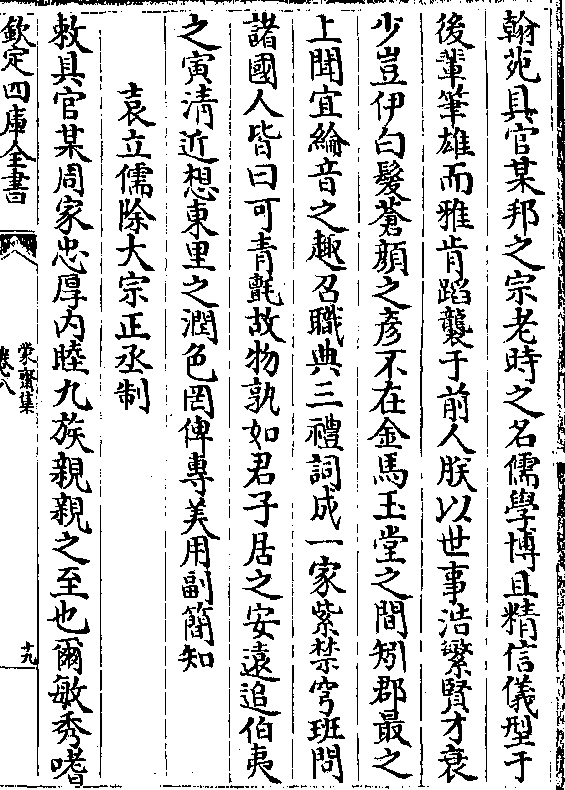 翰苑具官某邦之宗老時之名儒學博且精信儀型于
後輩筆雄而雅肯蹈襲于前人朕以世事浩繁賢才衰
少豈伊白髮蒼顔之彥不在金馬玉堂之間矧郡最之
上聞宜綸音之趣召職典三禮詞成一家紫禁穹班問
諸國人皆曰可青氊故物孰如君子居之安遠追伯夷
之寅清近想東里之潤色罔俾專美用副簡知
袁立儒除大宗正丞制
敕具官某周家忠厚内睦九族親親之至也爾敏秀嗜
欽定四庫全書
蒙齋集
卷八
十九